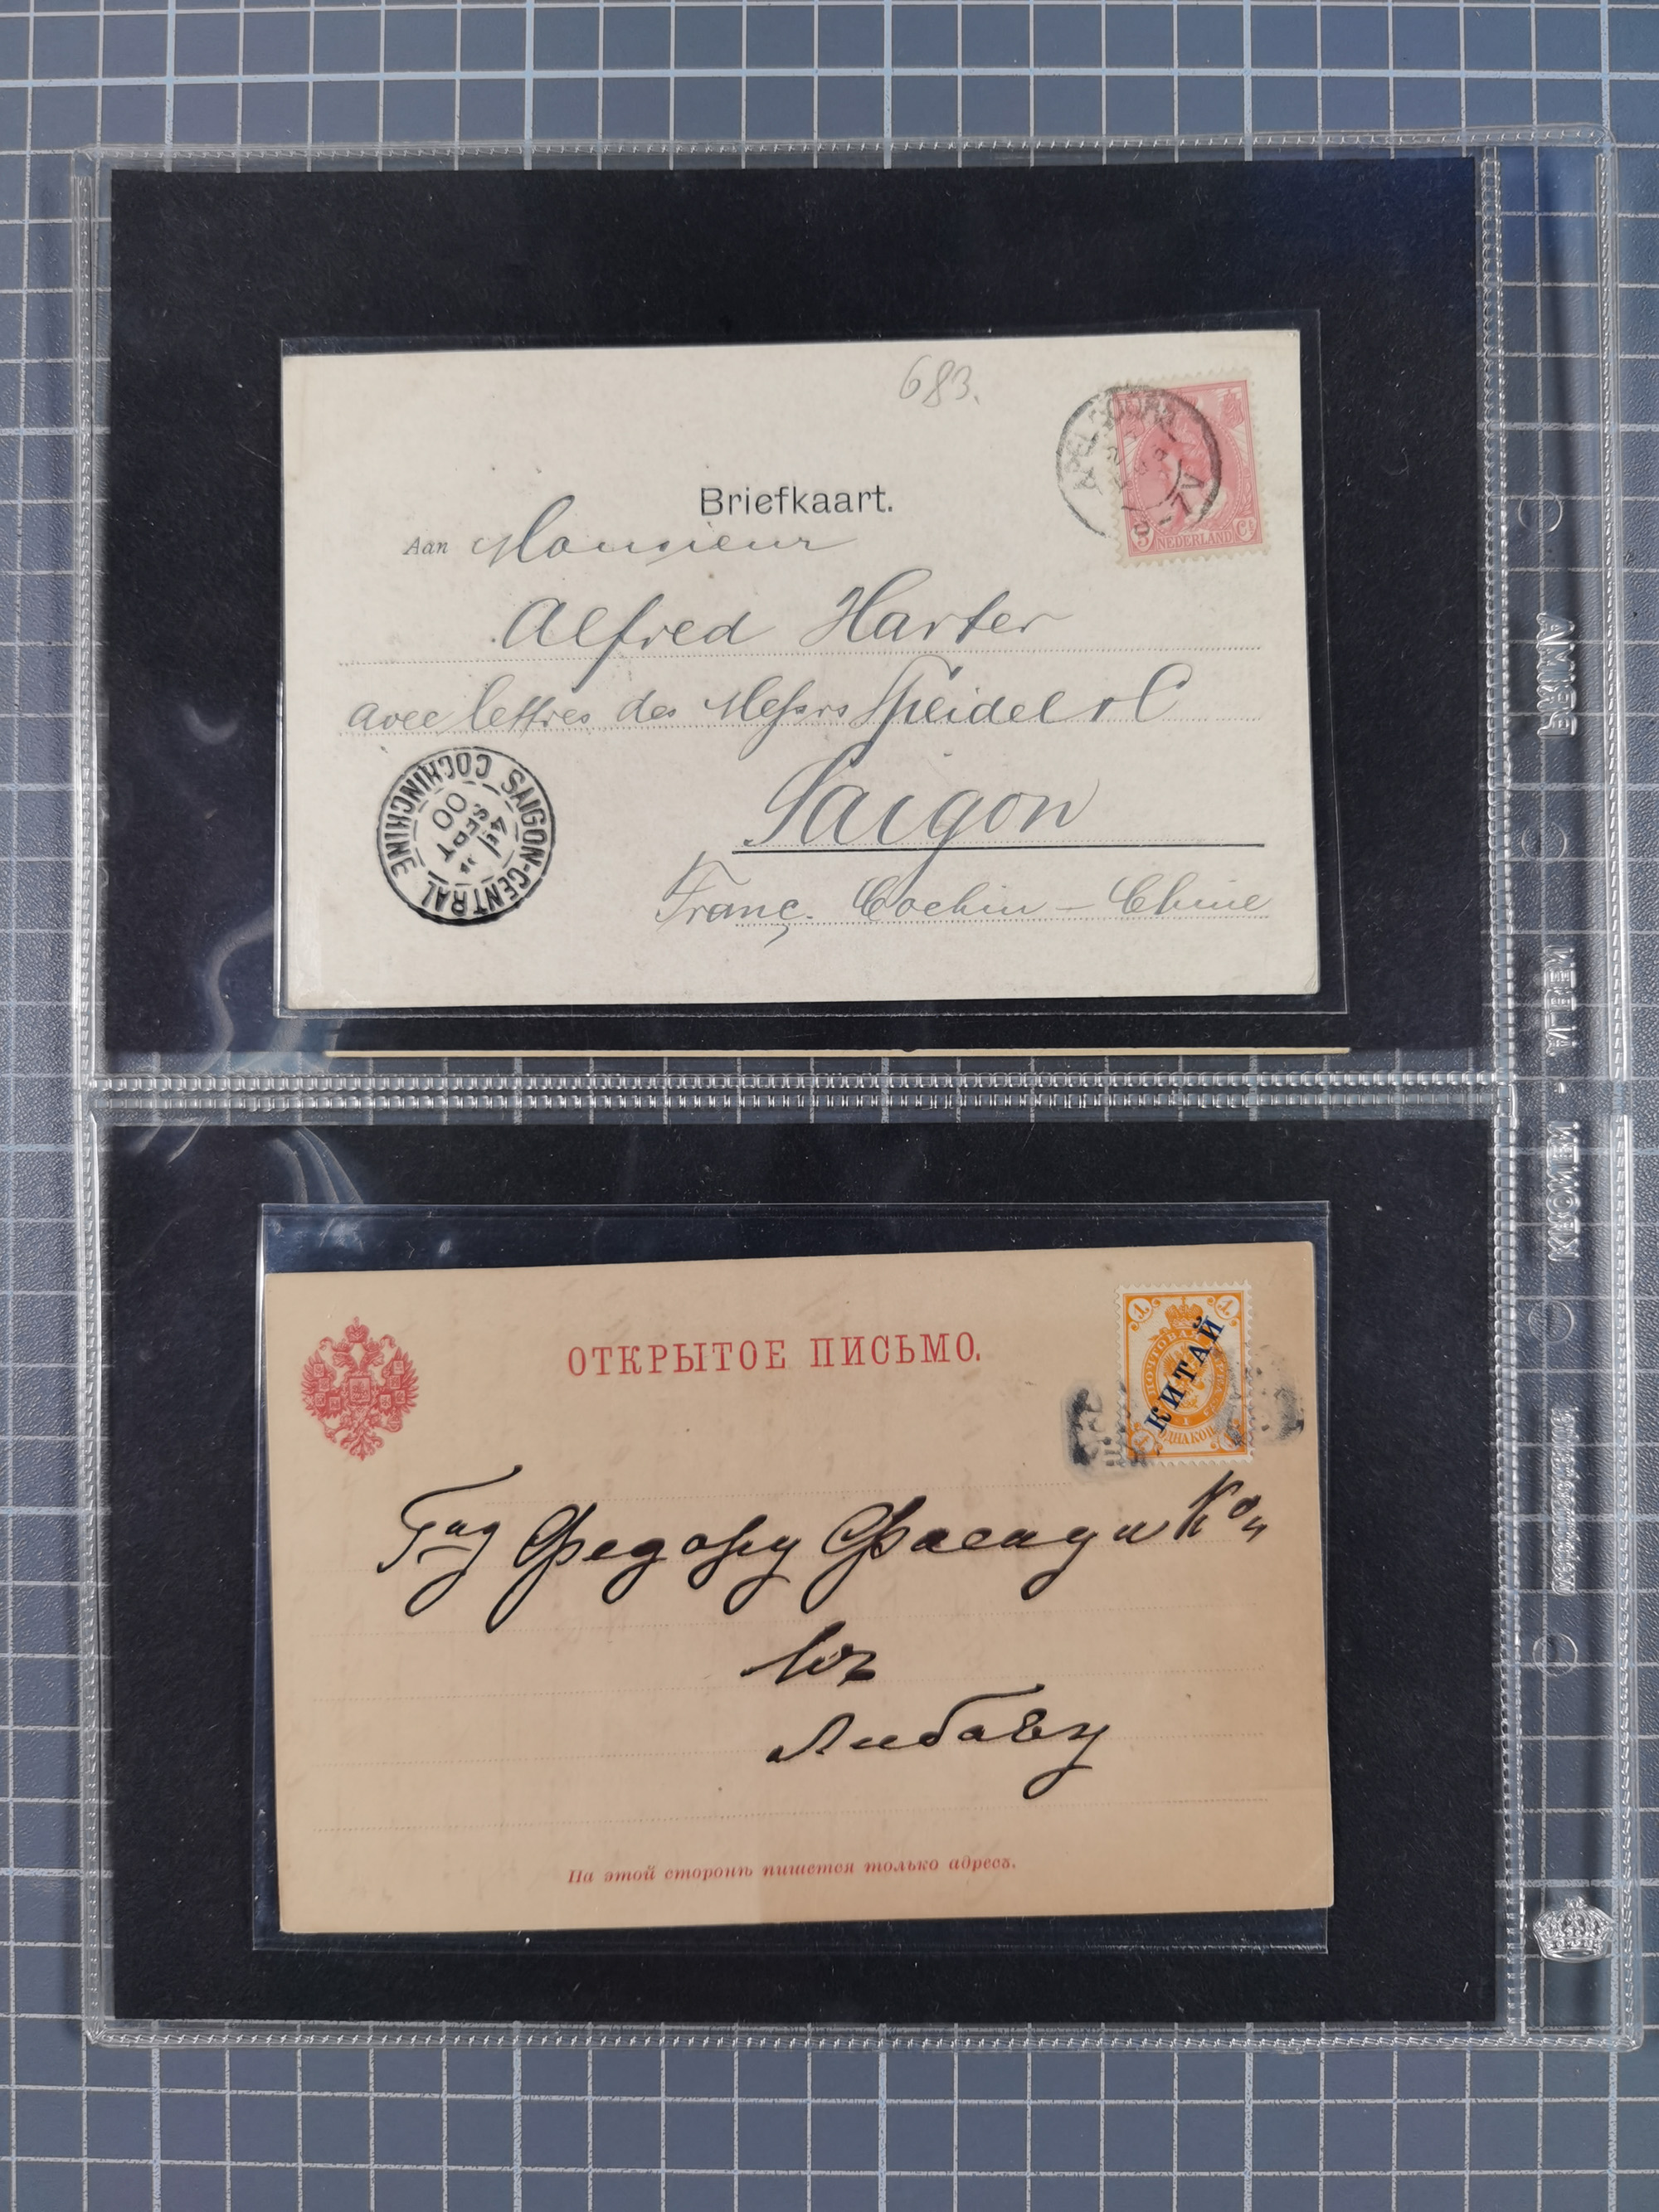 683.
Briefkaart.
Aan Monsieur
APELDOORN
5 NEDERLAND Ct
Alfred Harter
avec lettres des Messrs Speidel & C
Saigon
Franç. Cochin-Chine
SAIGON-CENTRAL
COCHINCHINE
4
SEPT
00
ОТКРЫТОЕ ПИСЬМО.
1 1
ПОЧТОВАЯ МАРКА
КИТАЙ
Федору
Въ
Либаву
На этой сторонѣ пишется только адресъ.
PRIMA